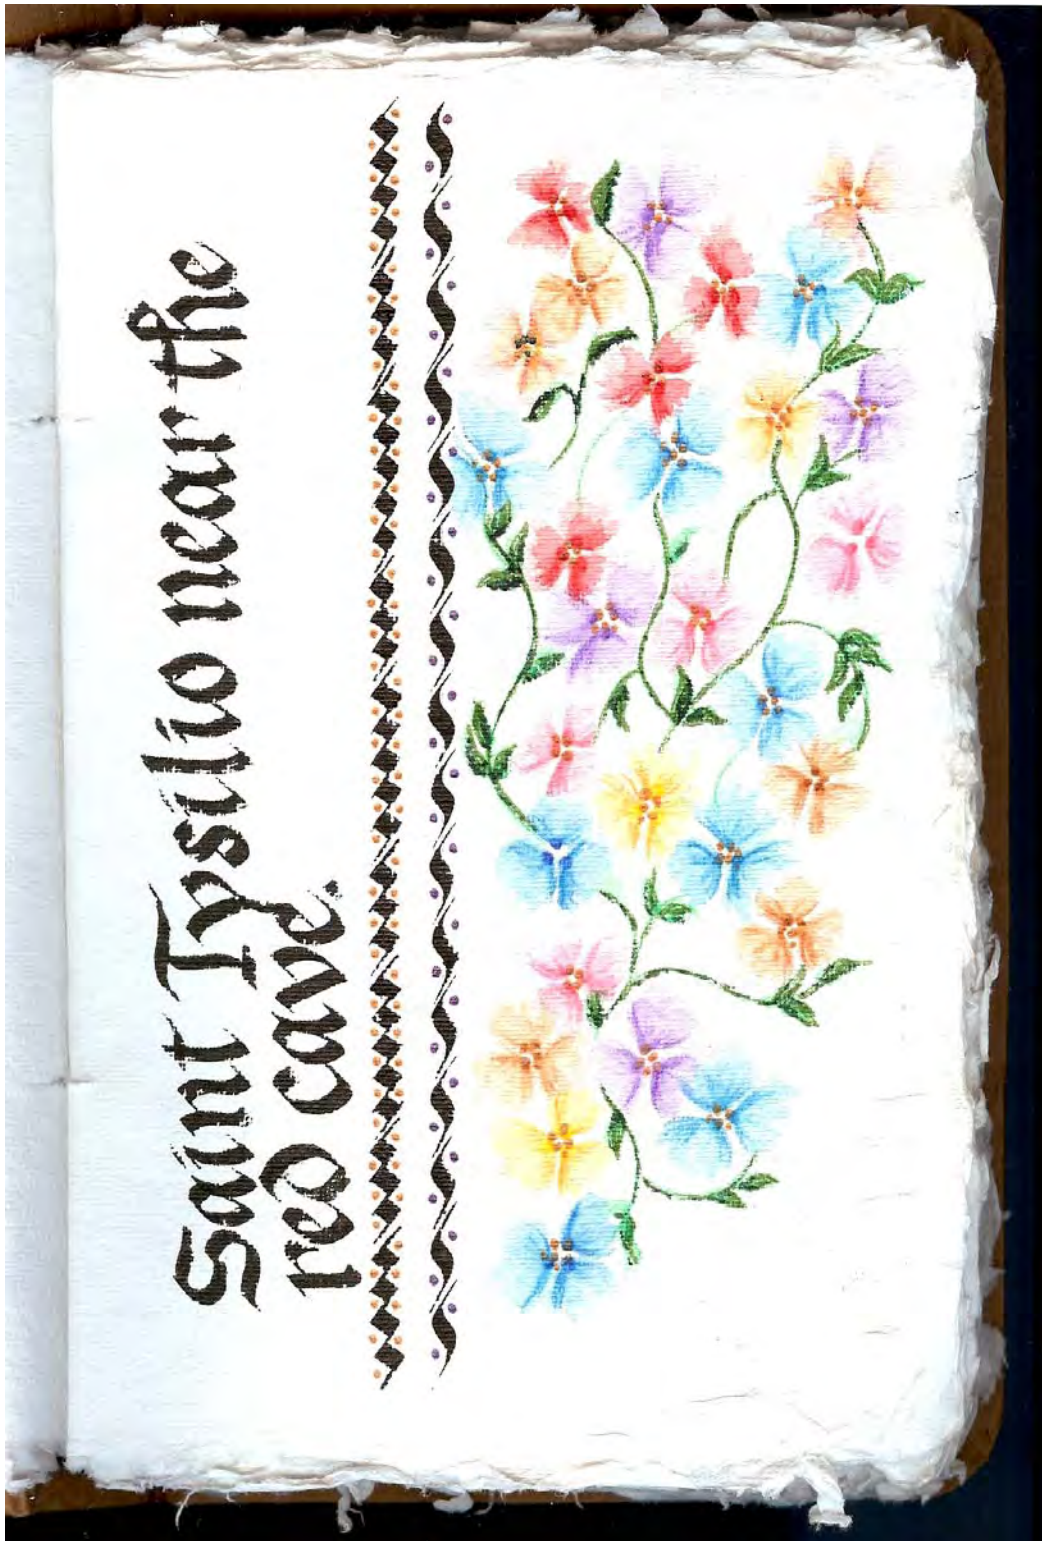 Saint Tysilio near the
red cave.